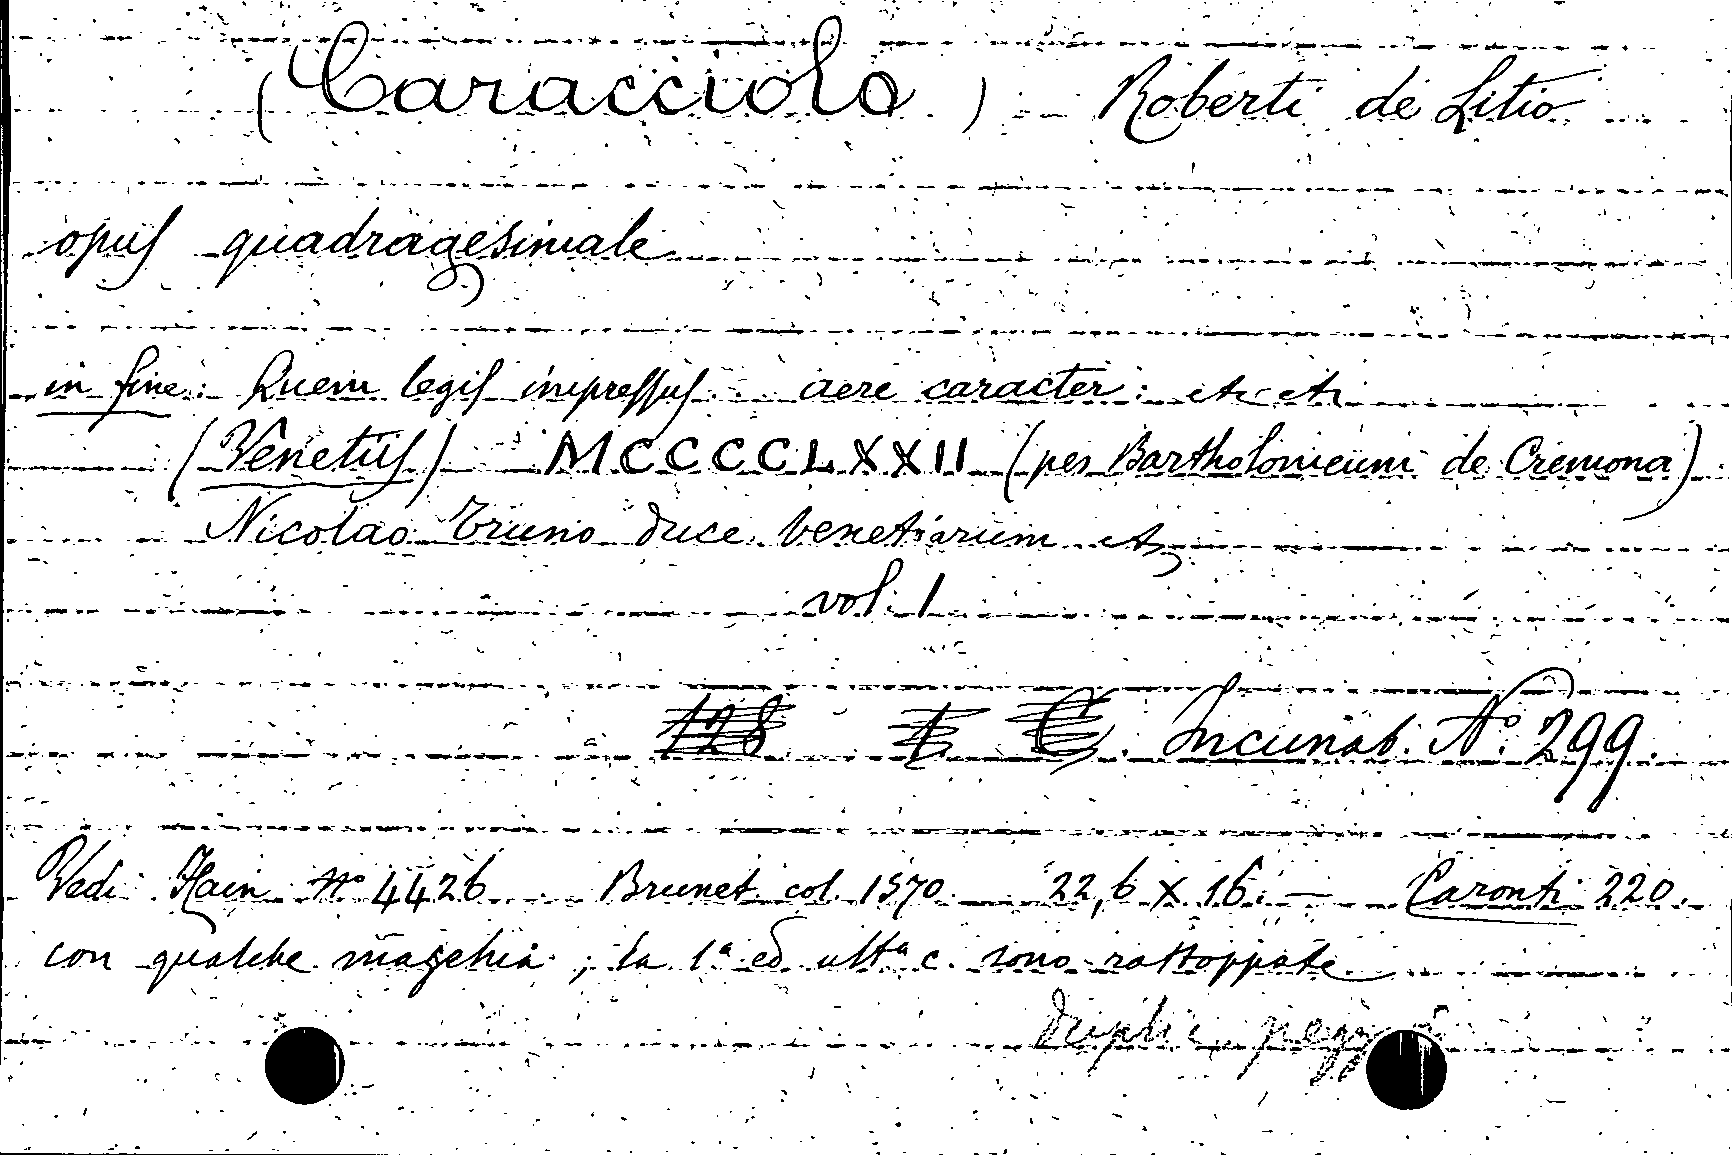 (Caracciolo) Roberti de Litio
opus quadragesimale
in fine: Quem legis impressus aere caracter: etc etc
(Venetiis) MCCCCLXXII (per Bartholomeum de Cremona)
Nicolao Truno duce venetiarum etc
vol. 1
128 I C. Incunab. N.º 299.
Vedi Hain nº 4426 Brunet col. 1570 22,6 x 16. — Caronti 220.
con qualche macchia; la 1ª ed ultª c. sono rattoppate